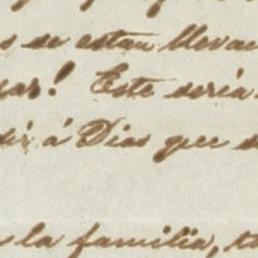 s se estan lleva
ar! Este sería
dir á Dios que s
la familia, t